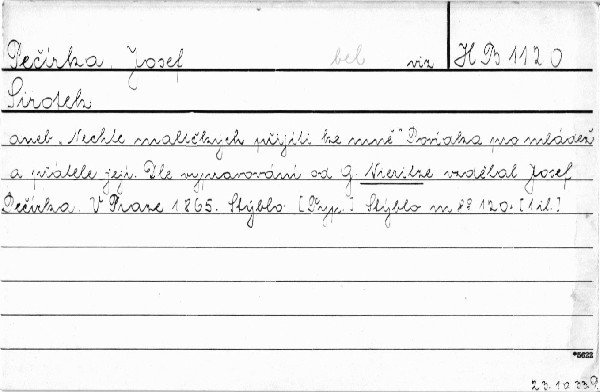 Pečírka, Josef bel viz H B 1120
Sirotek
aneb „Nechte maličkých přijíti ke mně“ Povídka pro mládež
a přátele její. Dle vypravování od G. Nieritze vzdělal Josef
Pečírka. V Praze 1865. Stýblo. [Typ.] Stýblo m 8° 120. [1 il.]
*5622
23.10.339